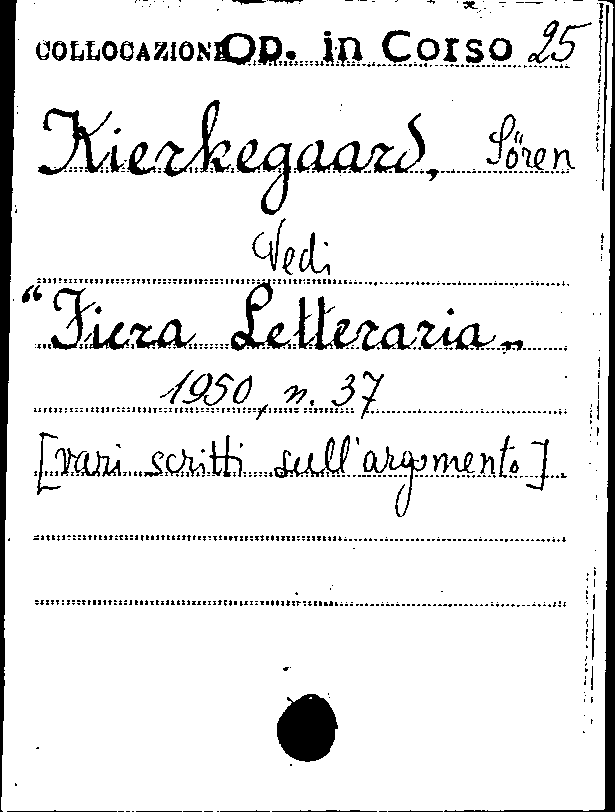 COLLOCAZIONE OP. in Corso 25
Kierkegaard, Sören
Vedi
“Fiera Letteraria„
1950, n. 37
[vari scritti sull'argomento]